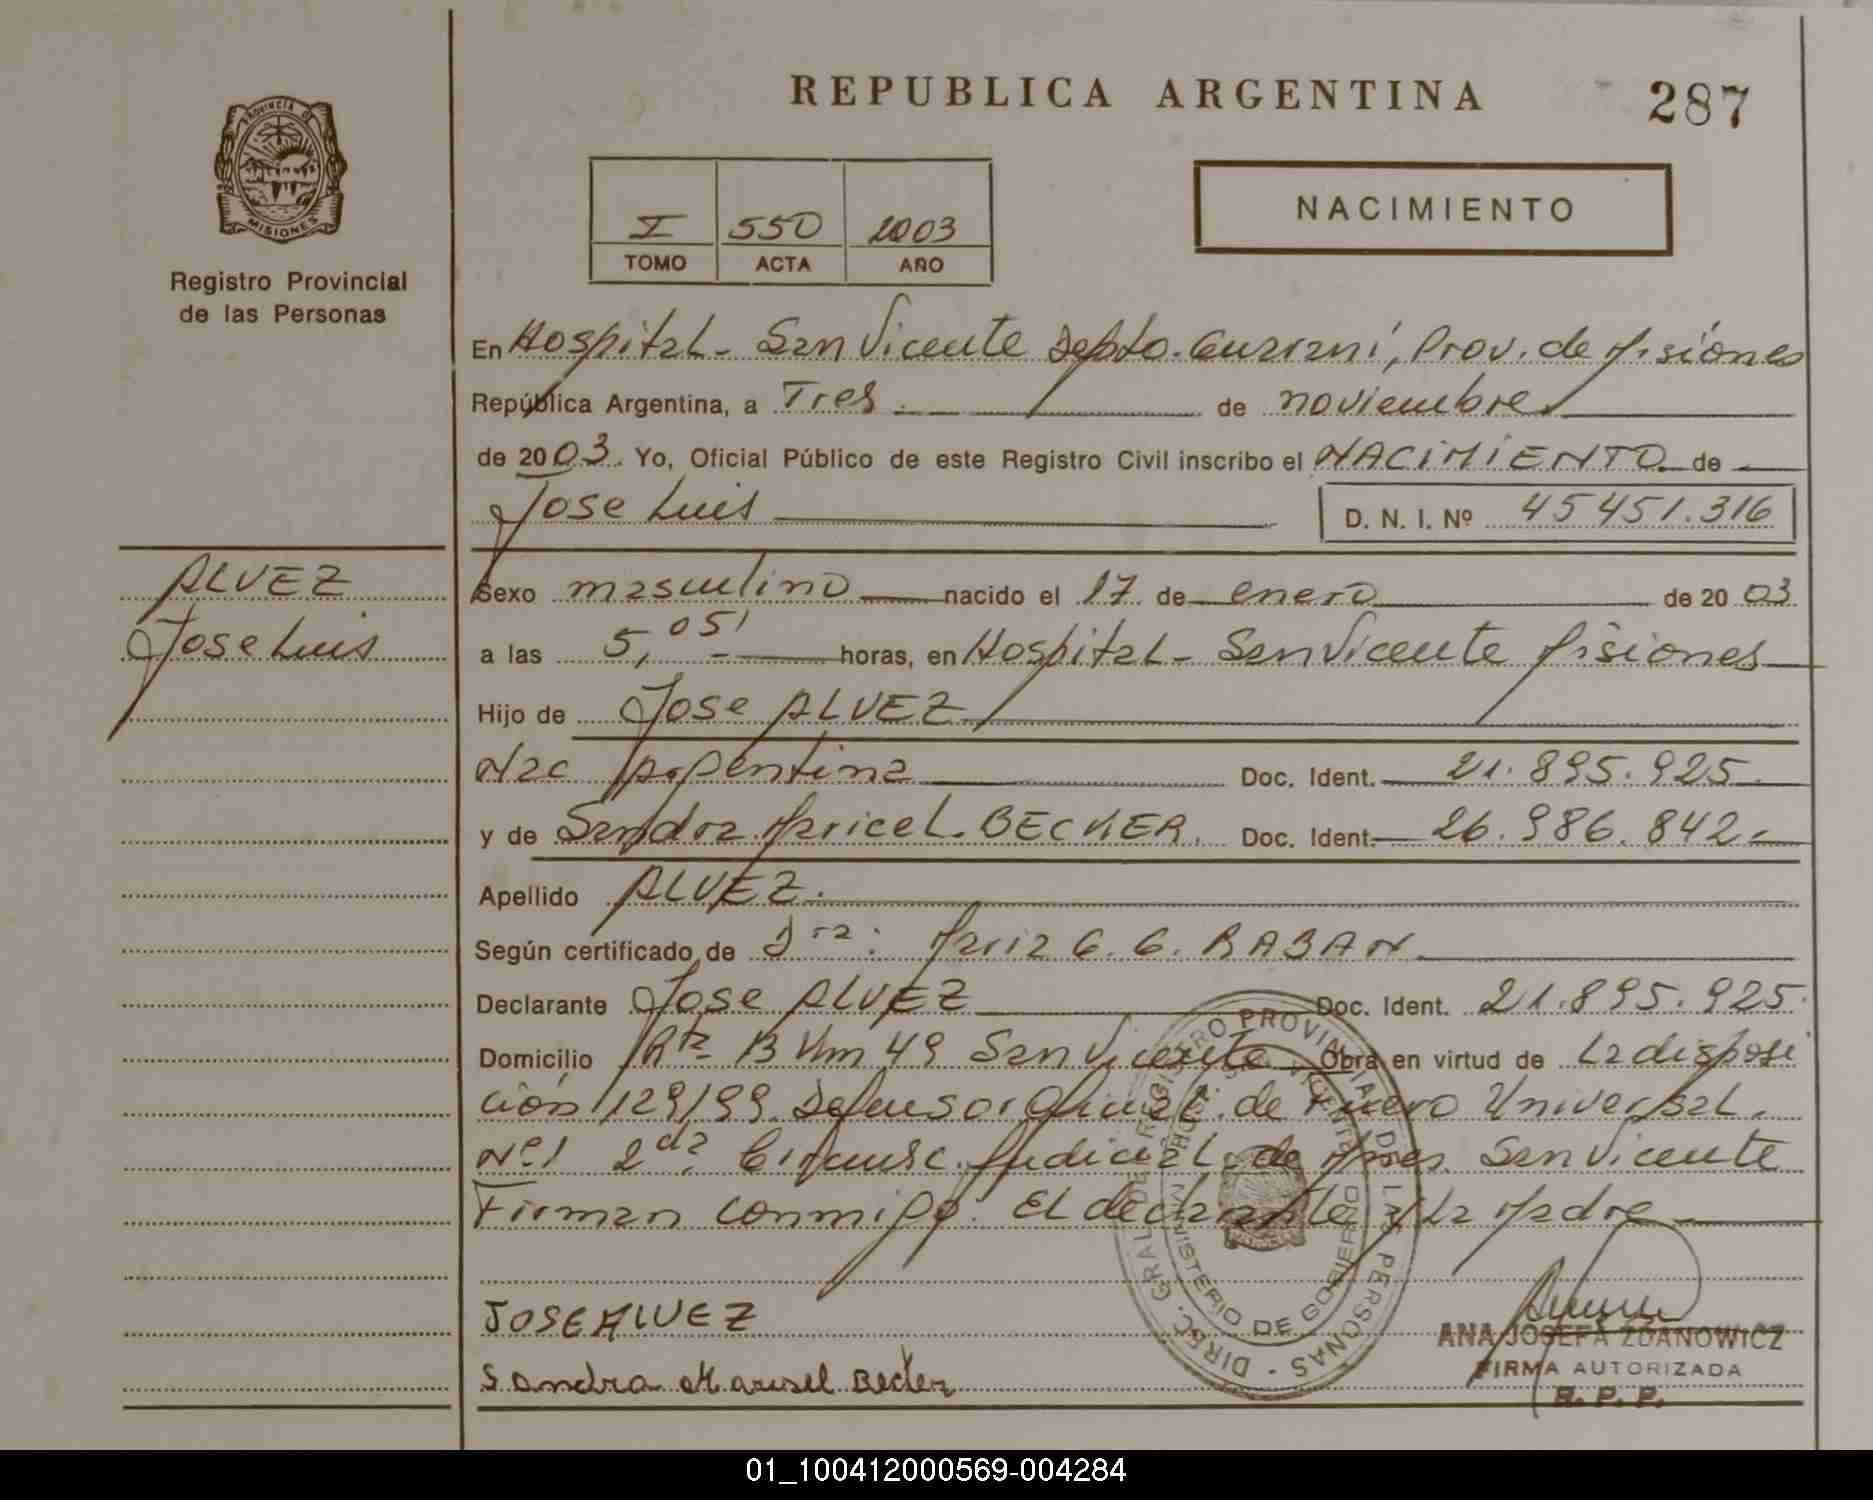 REPUBLICA ARGENTINA
287
PROVINCIA DE
MISIONES
Registro Provincial
de las Personas
I 550 2003
TOMO ACTA AÑO
NACIMIENTO
En Hospital - San Vicente Depto. Guaraní, Prov. de Misiones
República Argentina, a Tres de noviembre
de 2003. Yo, Oficial Público de este Registro Civil inscribo el NACIMIENTO de
Jose Luis
D. N. I. Nº 45 451.316
ALVEZ
Jose Luis
Sexo masculino nacido el 17 de enero de 2003
a las 5,05' horas, en Hospital - San Vicente Misiones
Hijo de Jose ALVEZ
Nac Argentina Doc. Ident. 21.895.925
y de Sandra Maricel BECKER. Doc. Ident. 26.986.842
Apellido ALVEZ.
Según certificado de Dra: Maria G. G. RABAN
Declarante Jose ALVEZ Doc. Ident. 21.895.925.
Domicilio Rta 13 Km 49 San Vicente Obra en virtud de La disposi
ción 129/99 Defensor Oficial de Fuero Universal.
Nº1 2da Circunsc. Judicial de Mnes San Vicente
Firman conmigo: El declarante y La Madre
JOSE ALVEZ
Sandra Marisel Becker
ANA JOSEFA ZDANOWICZ
FIRMA AUTORIZADA
R. P. P.
DIREC. GRAL. DE REGISTRO PROVINCIAL DE LAS PERSONAS
MINISTERIO DE GOBIERNO
01_100412000569-004284